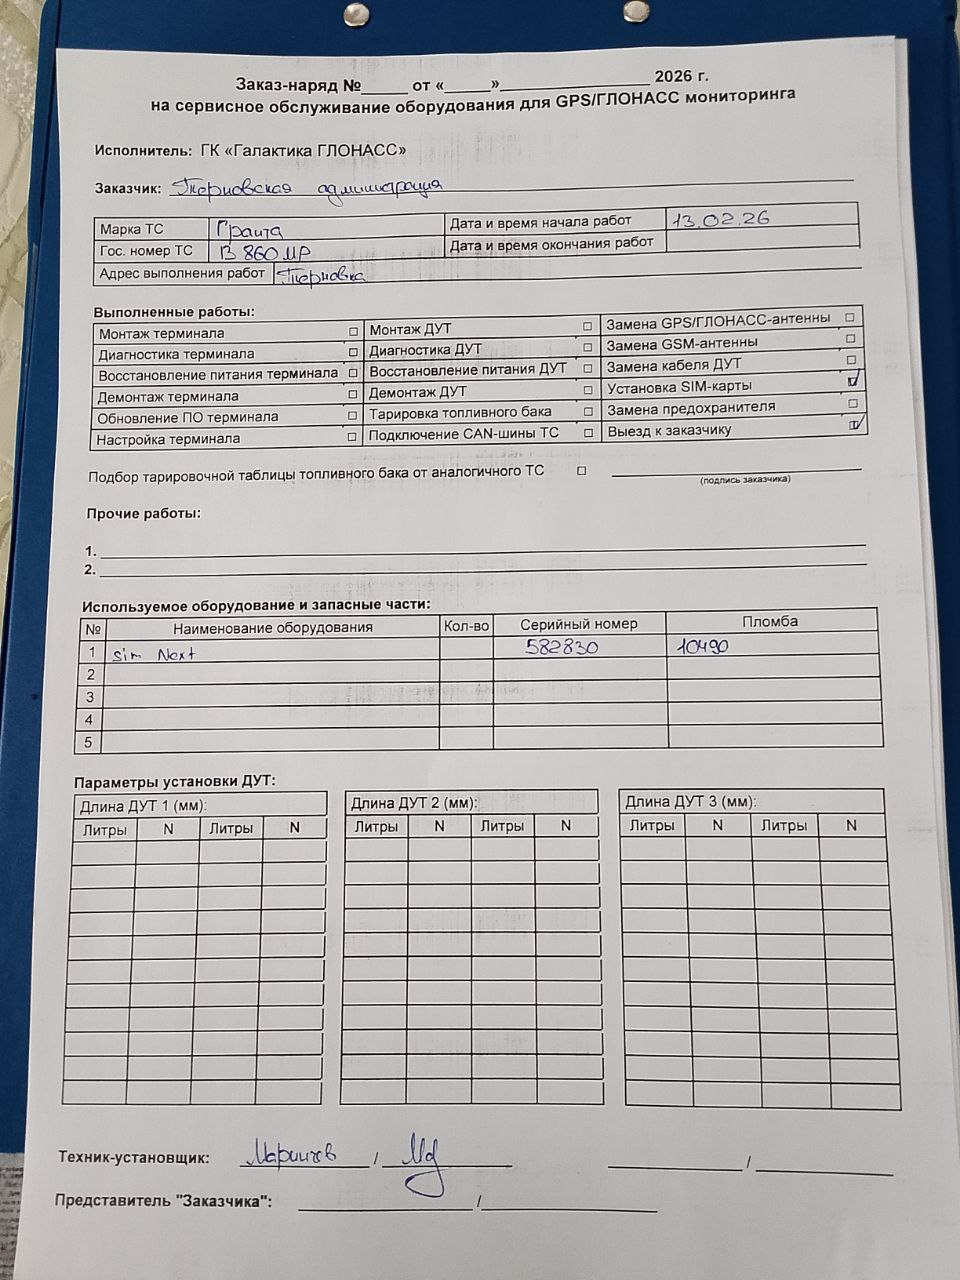 Заказ-наряд №_____ от «_____»__________________ 2026 г.
на сервисное обслуживание оборудования для GPS/ГЛОНАСС мониторинга
Исполнитель: ГК «Галактика ГЛОНАСС»
Заказчик: Терновская администрация
Марка ТС Гранта Дата и время начала работ 13.02.26
Гос. номер ТС В 860 МР Дата и время окончания работ
Адрес выполнения работ Терновка
Выполненные работы:
Монтаж терминала □ Монтаж ДУТ □ Замена GPS/ГЛОНАСС-антенны □
Диагностика терминала □ Диагностика ДУТ □ Замена GSM-антенны □
Восстановление питания терминала □ Восстановление питания ДУТ □ Замена кабеля ДУТ □
Демонтаж терминала □ Демонтаж ДУТ □ Установка SIM-карты ☑
Обновление ПО терминала □ Тарировка топливного бака □ Замена предохранителя □
Настройка терминала □ Подключение CAN-шины ТС □ Выезд к заказчику ☑
Подбор тарировочной таблицы топливного бака от аналогичного ТС □
(подпись заказчика)
Прочие работы:
1.
2.
Используемое оборудование и запасные части:
№ Наименование оборудования Кол-во Серийный номер Пломба
1 Sim Next 582830 10490
2
3
4
5
Параметры установки ДУТ:
Длина ДУТ 1 (мм): Длина ДУТ 2 (мм): Длина ДУТ 3 (мм):
Литры N Литры N Литры N Литры N Литры N Литры N
Техник-установщик: /
Представитель "Заказчика": /